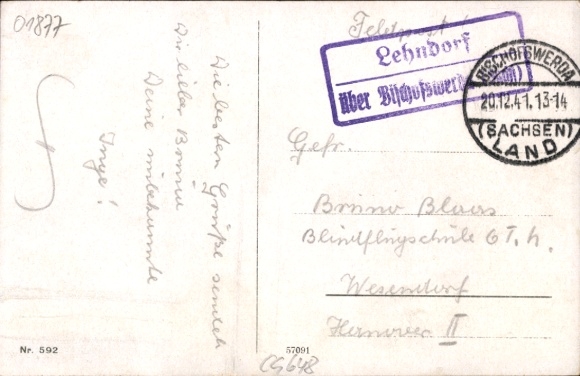 01877
Feldpost!
Lehndorf
über Bischofswerda
BISCHOFSWERDA
20.12.41.13-14
(SACHSEN)
LAND
Die besten Grüße sendet
Dir lieber Bruno
Deine unbekannte
Inge!
Gefr.
Bruno Blaas
Blindflugschule 6 T. h.
Wesendorf
Hannover II
Nr. 592
57091
CG648